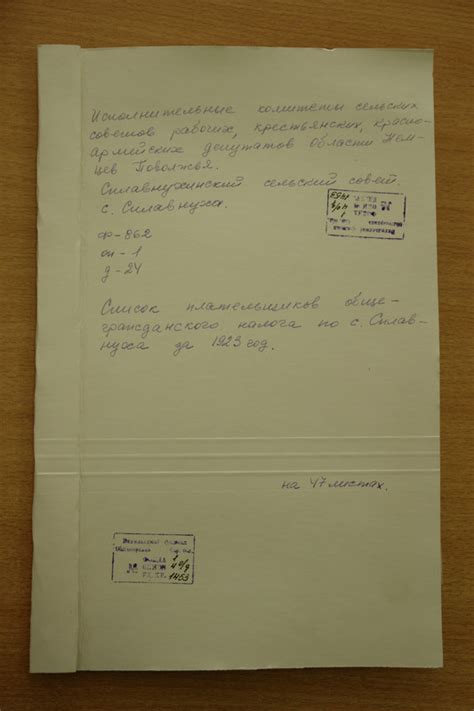 Исполнительные комитеты сельских
советов рабочих, крестьянских, красно-
армейских депутатов области Нем-
цев Поволжья.
Сплавнухинский сельский совет.
с. Сплавнуха.
ф-862
оп-1
д-24
Список плательщиков обще-
гражданского налога по с. Сплав-
нуха за 1923 год.
на 47 листах.